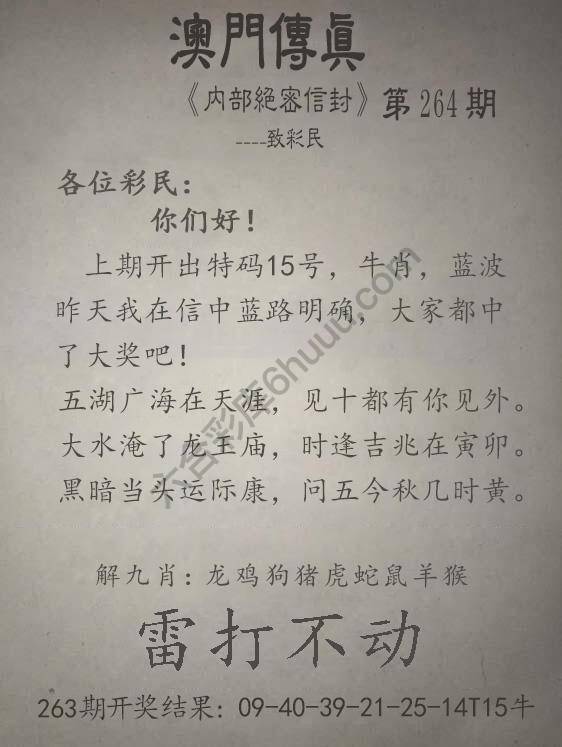 澳門傳真
《内部絕密信封》第264期
----致彩民
各位彩民：
你们好！
上期开出特码15号，牛肖，蓝波
昨天我在信中蓝路明确，大家都中
了大奖吧！
五湖广海在天涯，见十都有你见外。
大水淹了龙王庙，时逢吉兆在寅卯。
黑暗当头运际康，问五今秋几时黄。
解九肖：龙鸡狗猪虎蛇鼠羊猴
雷打不动
263期开奖结果：09-40-39-21-25-14T15牛
六合彩库6huuu.com